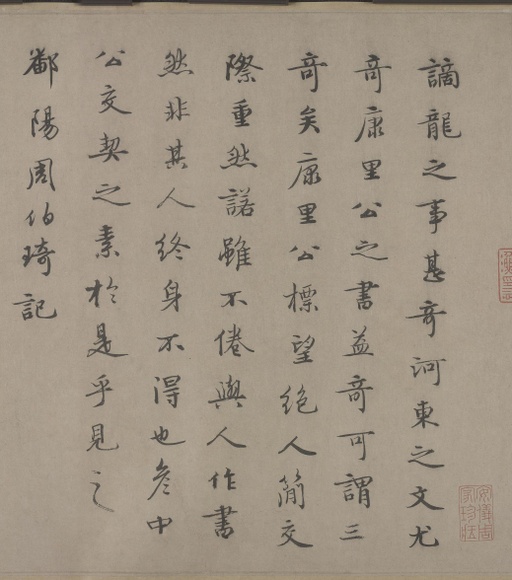 謫龍之事甚奇河東之文尤
奇康里公之書益奇可謂三
奇矣康里公標望絕人簡交
際重然諾雖不倦與人作書
然非其人終身不得也彥中
公交契之素於是乎見之
鄱陽周伯琦記